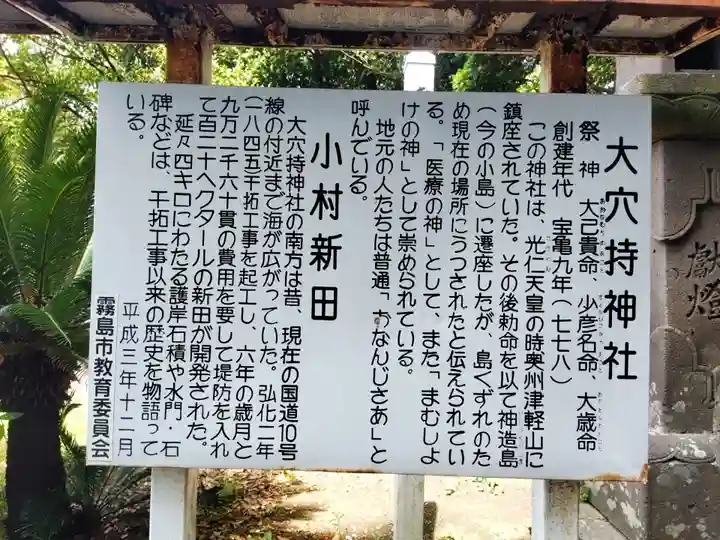 大穴持神社
祭神 大己貴命、少彦名命、大歳命
創建年代 宝亀九年(七七八)
この神社は、光仁天皇の時奥州津軽山に
鎮座されていた。その後勅命を以て神造島
(今の小島)に遷座したが、島くずれのた
め現在の場所にうつされたと伝えられてい
る。「医療の神」として、また「まむしよ
けの神」として崇められている。
地元の人たちは普通「おなんじさあ」と
呼んでいる。
小村新田
大穴持神社の南方は昔、現在の国道10号
線の付近まで海が広がっていた。弘化二年
(一八四五)干拓工事を起工し、六年の歳月と
九万二千六十貫の費用を要して堤防を入れ
て百二十ヘクタールの新田が開発された。
延々四キロにわたる護岸石積や水門・石
碑などは、干拓工事以来の歴史を物語って
いる。
平成三年十二月
霧島市教育委員会
献燈